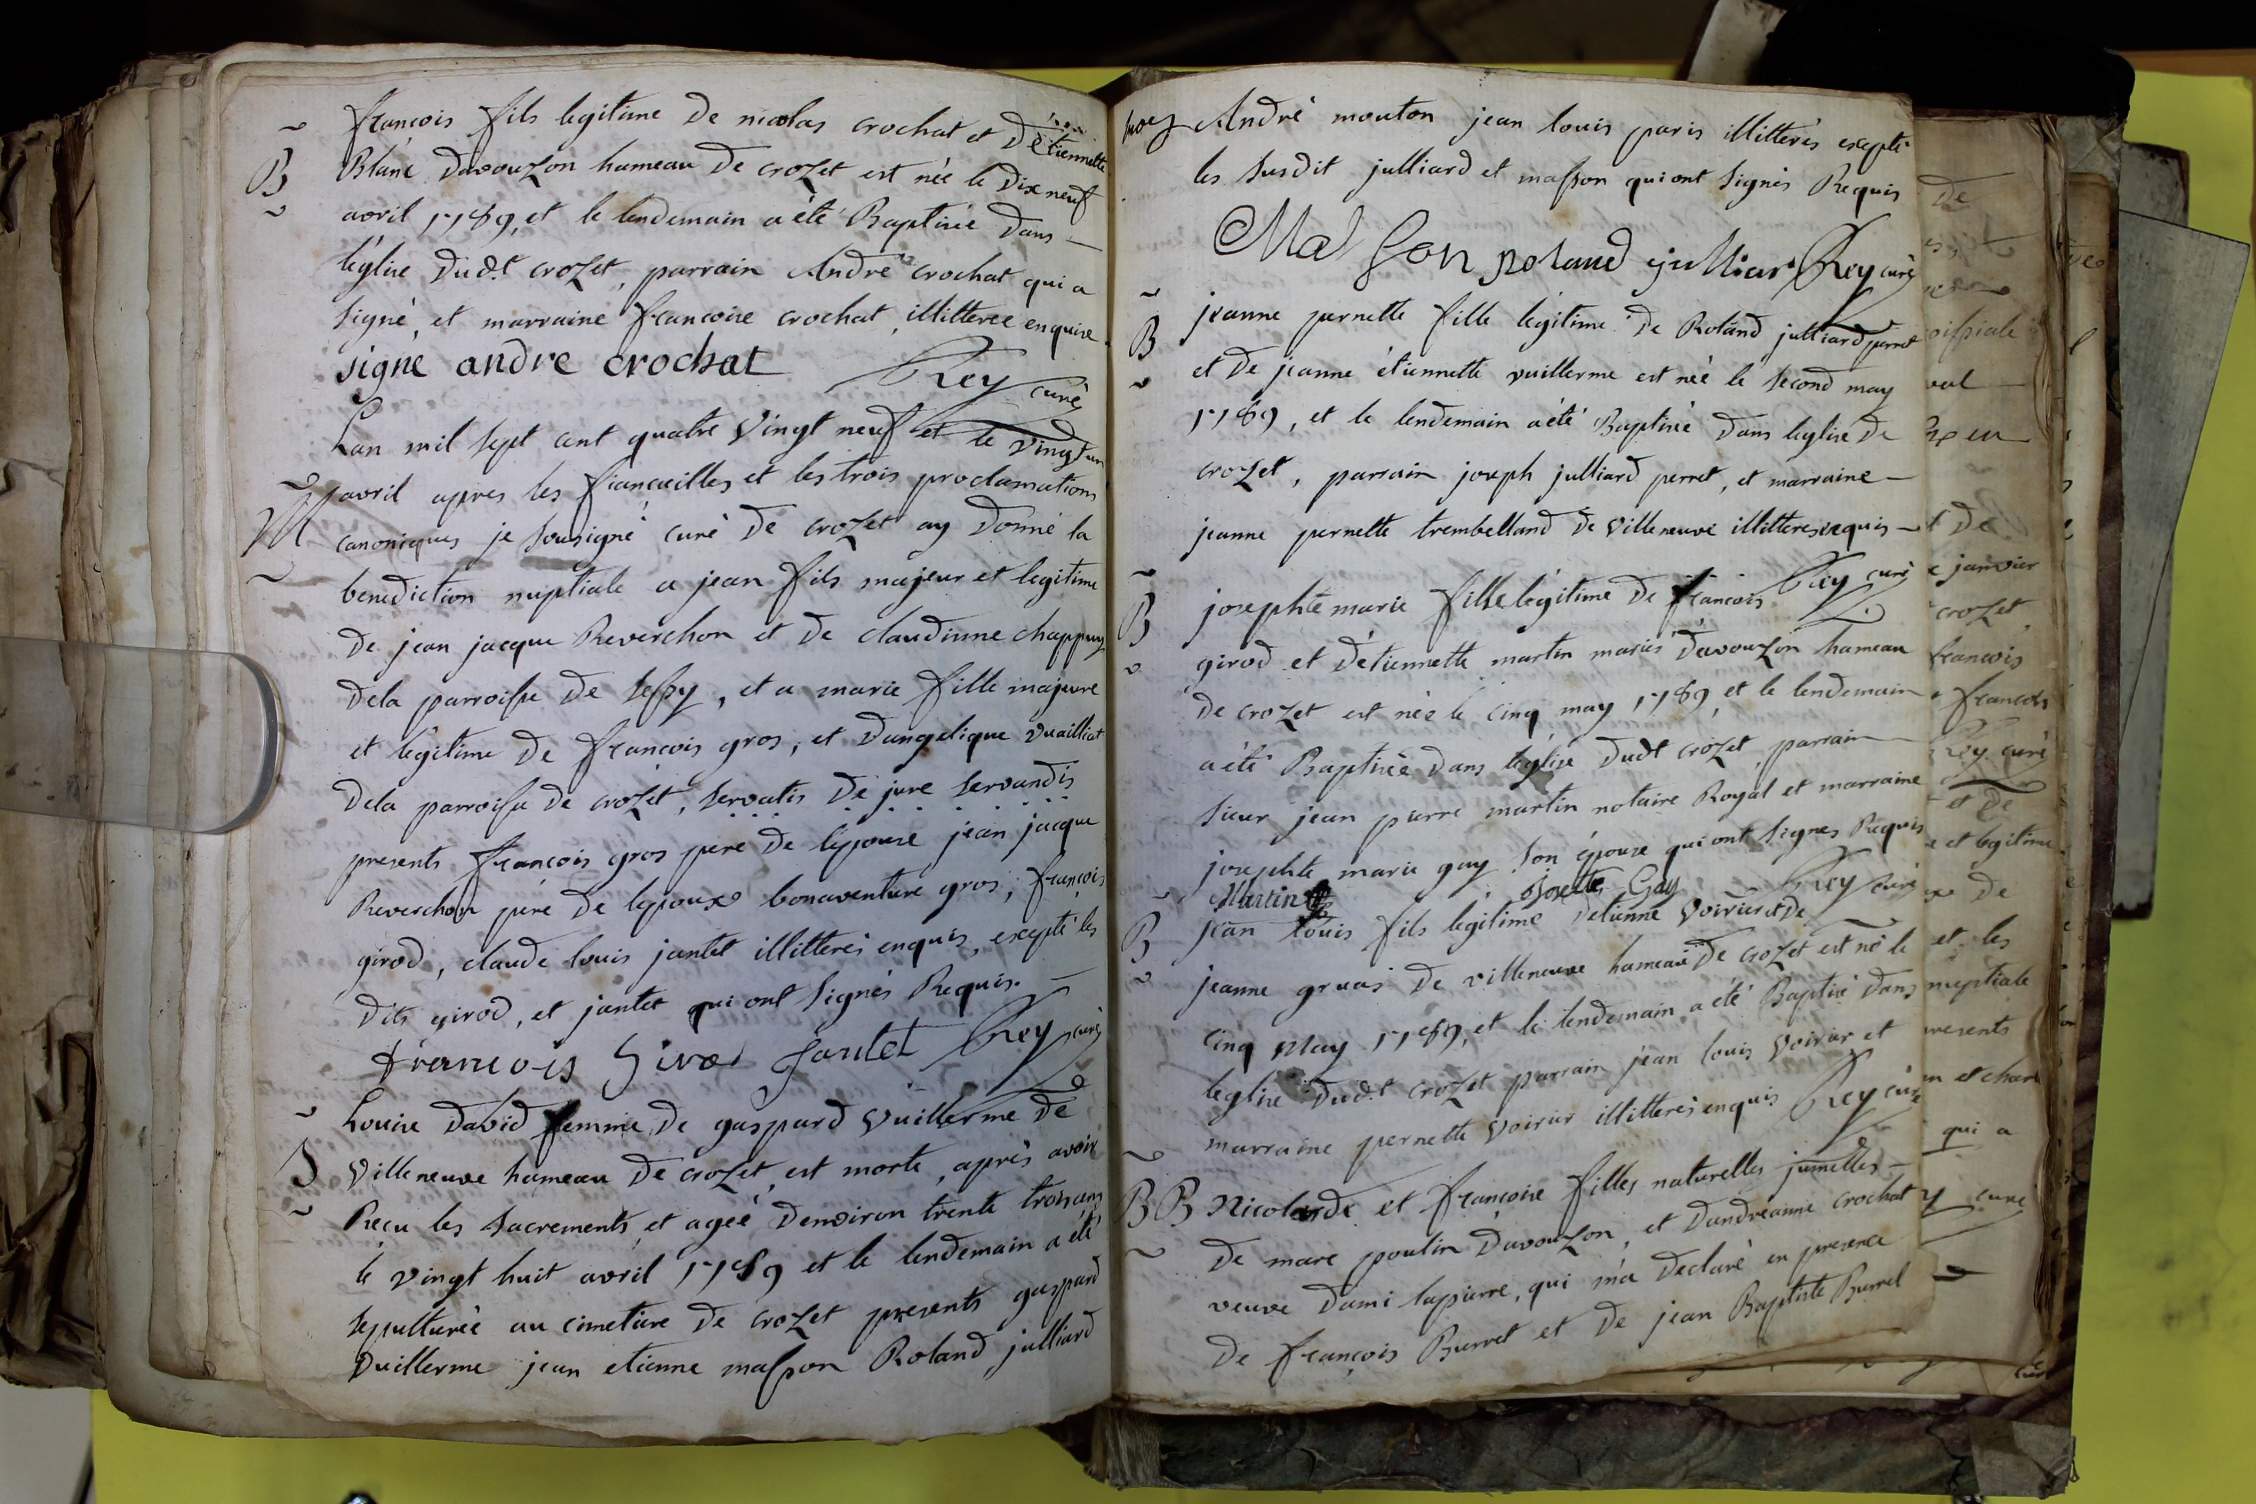 françois fils legitime De nicolas crochat et D'étiennette
B Blanc Davouzon hameau De crozet est née le Dix neuf
avril 1789, et le lendemain a été Baptisée Dans
léglise Dud.t crozet, parrain André crochat qui a
signé, et marraine francoise crochat, illitteree enquise
signé andre crochat Rey curé
Lan mil sept cent quatre vingt neuf et le vingt un
M avril apres les fiancailles et les trois proclamations
canoniques je sousigné curé De crozet ay Donné la
benediction nuptiale a jean fils majeur et legitime
De jean jacque Reverchon et De claudinne chappuy
Dela parroisse De sessy, et a marie fille majeure
et légitime De françois gros, et Dangelique vuailliat
Dela parroisse De crozet, servatis De jure servandis
presents françois gros pere De lépouse jean jacque
Reverchon pere De lepoux bonaventure gros, françois
girod, claude louis jantet illitterés enquis, excepté les
Dits girod, et jantet qui ont signés Requis.
francois Girod Jantet Rey curé
S Louise David femme De gaspard vuillerme De
villeneuve hameau De crozet, est morte, après avoir
Reçu les sacrements, et ageé Denviron trente trois ans
le vingt huit avril 1789 et le lendemain a été
sepulturée au cimetiere De crozet presents gaspard
vuillerme jean etienne masson Roland julliard
André mouton jean louis paris illitterés excepté
les susdit julliard et masson qui ont signés Requis
Masson roland julliar Rey curé
B jeanne pernette fille légitime De Roland julliard perret
et De jeanne étiennette vuillerme est née le second may
1789, et le lendemain a été Baptisée Dans leglise De
crozet, parrain joseph julliard perret, et marraine
jeanne pernette trembelland De villeneuve illitteres enquis
Rey curé
B josephte marie fille légitime De francois
girod et D'étiennette martin mariés Davouzon hameau
De crozet est née le cinq may 1789, et le lendemain
a été Baptisée Dans léglise Dudt crozet, parrain
sieur jean pierre martin notaire Royal et marraine
josephte marie gay son épouse qui ont signes Requis
Martin Josette Gay Rey curé
B jean louis fils légitime Detienne voirier et De
jeanne gruas De villeneuve hameau De crozet est né le
cinq May 1789, et le lendemain a été Baptisé Dans
leglise Dud.t crozet parrain jean louis voirier et
marraine pernette voirier illitterés enquis Rey curé
B B Nicolarde et françoise filles naturelles jumelles
De marc poulin Davouzon, et Dandréanne crochat
veuve Dami lapierre, qui m'a Declaré en presence
De françois Burret et De jean Baptiste Burrel
De
val
t De
e janvier
crozet
francois
e francois
Rey curé
et De
e et legitime
De
et les
nuptiale
presents
qui a
y curé